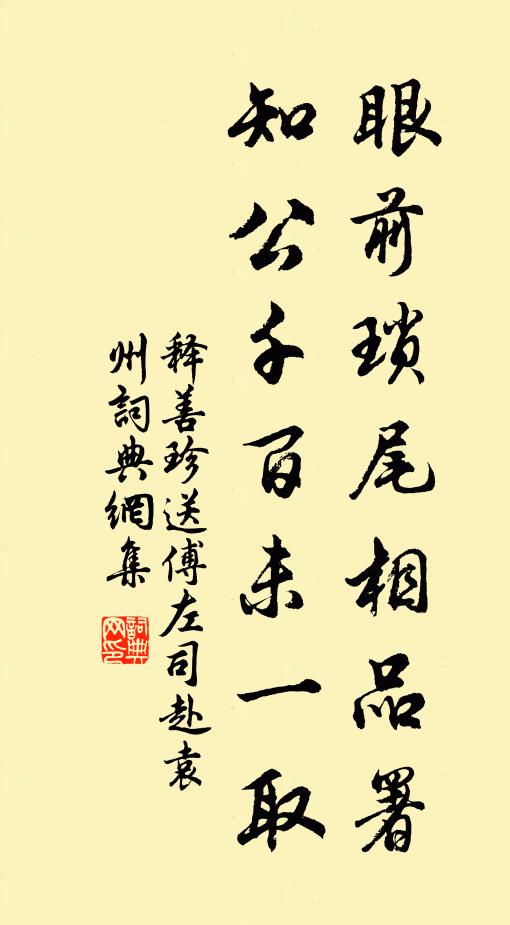 眼前瑣尾相品署
知公千百未一取
释善珍送傅左司赴袁
州詞典網集
詞典
网印